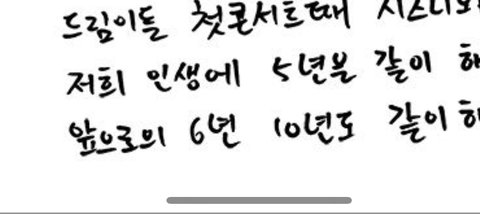 드림이들 첫콘서트때
저희 인생에 5년분 같이 해
앞으로의 6년 10년도 같이 해